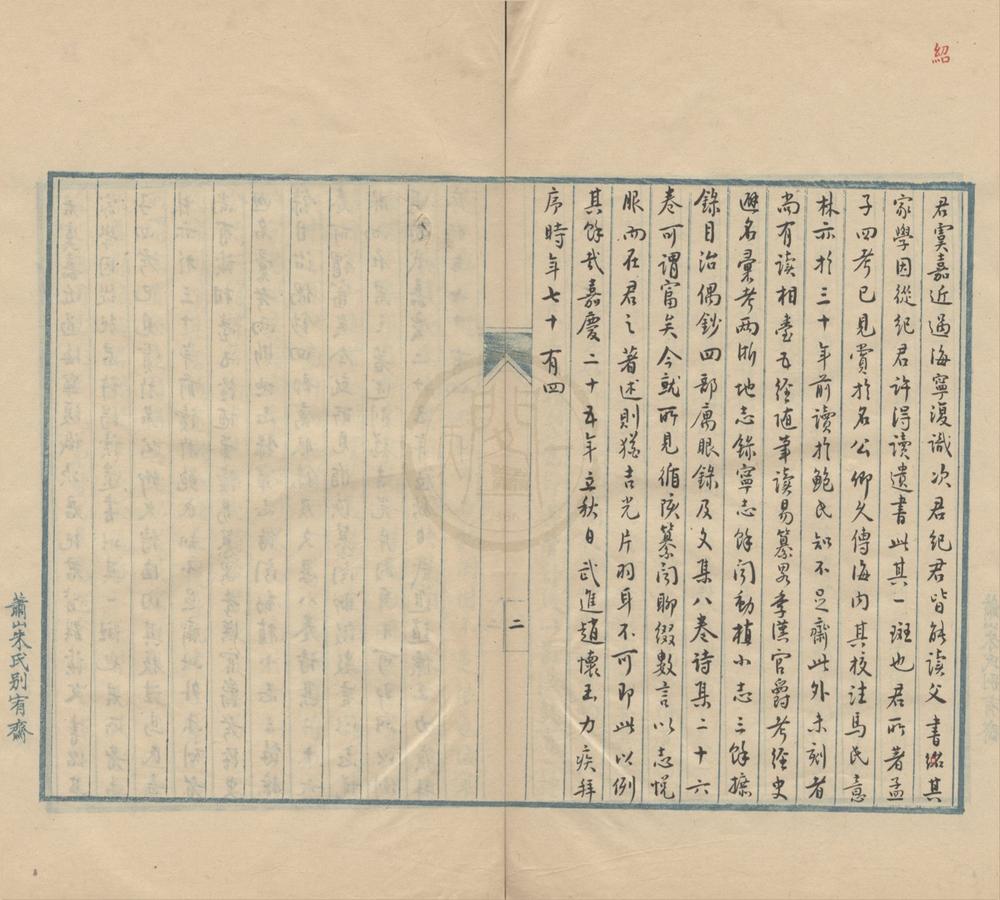 紹
君虞嘉近過海寧復識次君紀君皆能读父書紹其
家學因從紀君許得讀遺書此其一斑也君所著孟
子四考已見賞於名公卿久傳海内其校注馬氏意
林亦於三十年前讀於鮑氏知不足齋此外未刻者
尚有读相臺五經随筆读易纂畧季漢官爵考經史
避名彙考兩浙地志錄寧志餘聞動植小志三餘摭
錄目治偶鈔四部寓眼錄及文集八卷诗集二十六
卷可謂富矣今就所見循陔纂聞聊綴數言以志悅
服而在君之著述則猶吉光片羽耳不可即此以例
其餘哉嘉慶二十五年立秋日武進趙懷玉力疾拜
序時年七十有四
二
蕭山朱氏別宥齋